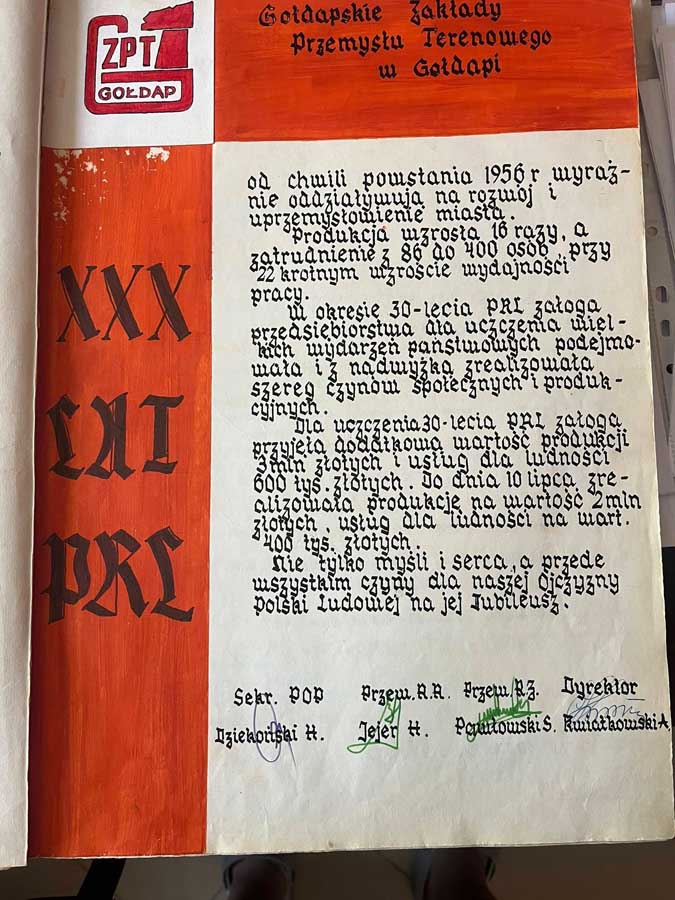 ZPT
GOŁDAP
Gołdapskie Zakłady
Przemysłu Terenowego
w Gołdapi
XXX
LAT
PRL
od chwili powstania 1956 r wyraź-
nie oddziaływują na rozwój i
uprzemysłowienie miasta.
Produkcja wzrosła 16 razy, a
zatrudnienie z 86 do 400 osób, przy
22 krotnym wzroście wydajności
pracy.
W okresie 30-lecia PRL załoga
przedsiębiorstwa dla uczczenia wiel-
kich wydarzeń państwowych podejmo-
wała i z nadwyżką zrealizowała
szereg czynów społecznych i produk-
cyjnych.
Dla uczczenia 30-lecia PRL załoga
przyjęła dodatkową wartość produkcji
3 mln złotych i usług dla ludności
600 tys. złotych. Do dnia 10 lipca zre-
alizowała produkcję na wartość 2 mln
złotych, usług dla ludności na wart.
400 tys. złotych.
Nie tylko myśli i serca, a przede
wszystkim czyny dla naszej Ojczyzny
Polski Ludowej na jej Jubileusz.
Sekr. POP Przew. R.R. Przew. R.Z. Dyrektor
Dziekoński H. Jejer H. Pawłowski S. Kwiatkowski A.